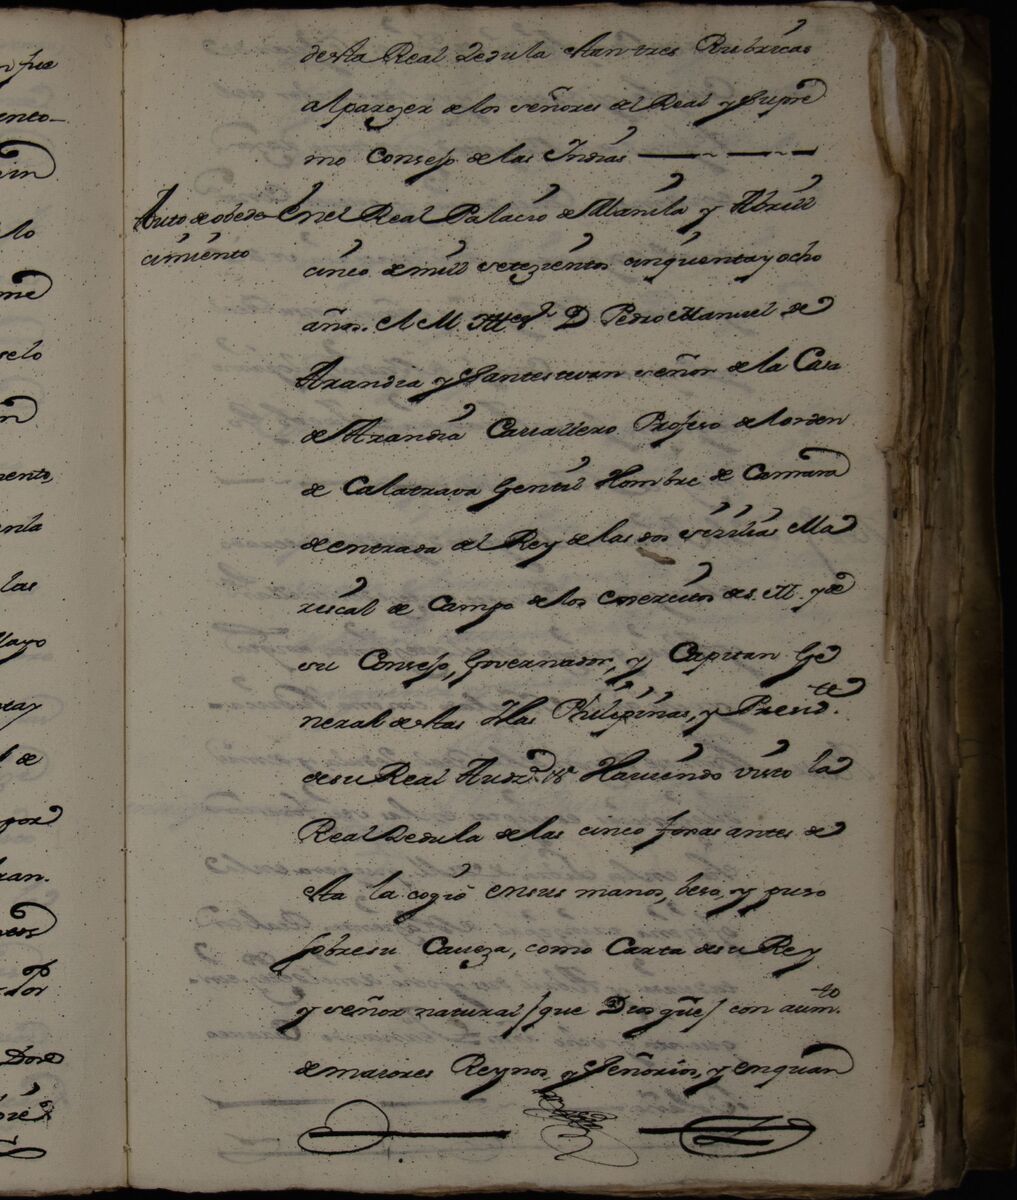 n fue
ento
in
lo
me
selo
n
mento,
enla
las
Mayo
tay
l de
por
ran.
P
r. Por
Dore
bre
desta Real Zedula stan tres Rubricas
alparezer delos señores del Real y Supre
mo Consejo delas Indias
Auto de obede
cimiento
Enel Real Palacio de Manila y Abrill
cinco demill setezientos cinquenta y ocho
años. El M. Ill.e S.r D. Pedro Manuel de
Arandia y Santestevan señor de la Casa
de Arandia Cavallero Profeso delorden
de Calatrava Gentil Hombre de Camara
de entrada del Rey delas dos Sizilias Ma
riscal de Campo delos Exercitos de S. M. y de
su Consejo, Governador, y Capitan Ge
neral destas Yslas Philipinas, y Presid.te
desu Real Aud.a &a Haviendo visto la
Real Zedula delas cinco foxas antes de
sta la cogió ensus manos, beso, y puso
sobresu Caveza, como Carta desu Rey
y señor natural (que Dios güe) con aum.to
demaiores Reynos, y Señorios, y enquan